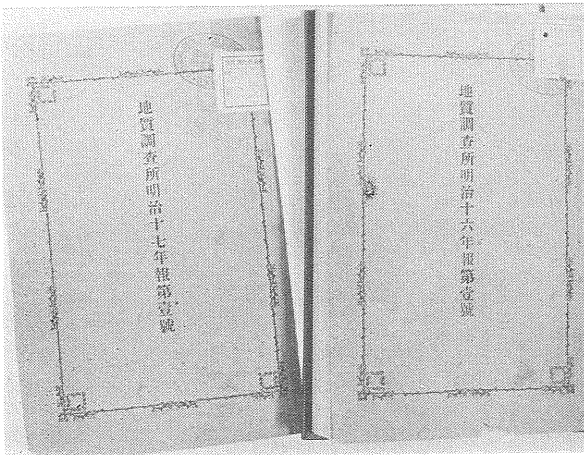 地質調査所明治十七年報第壹號
地質調査所明治十六年報第壹號